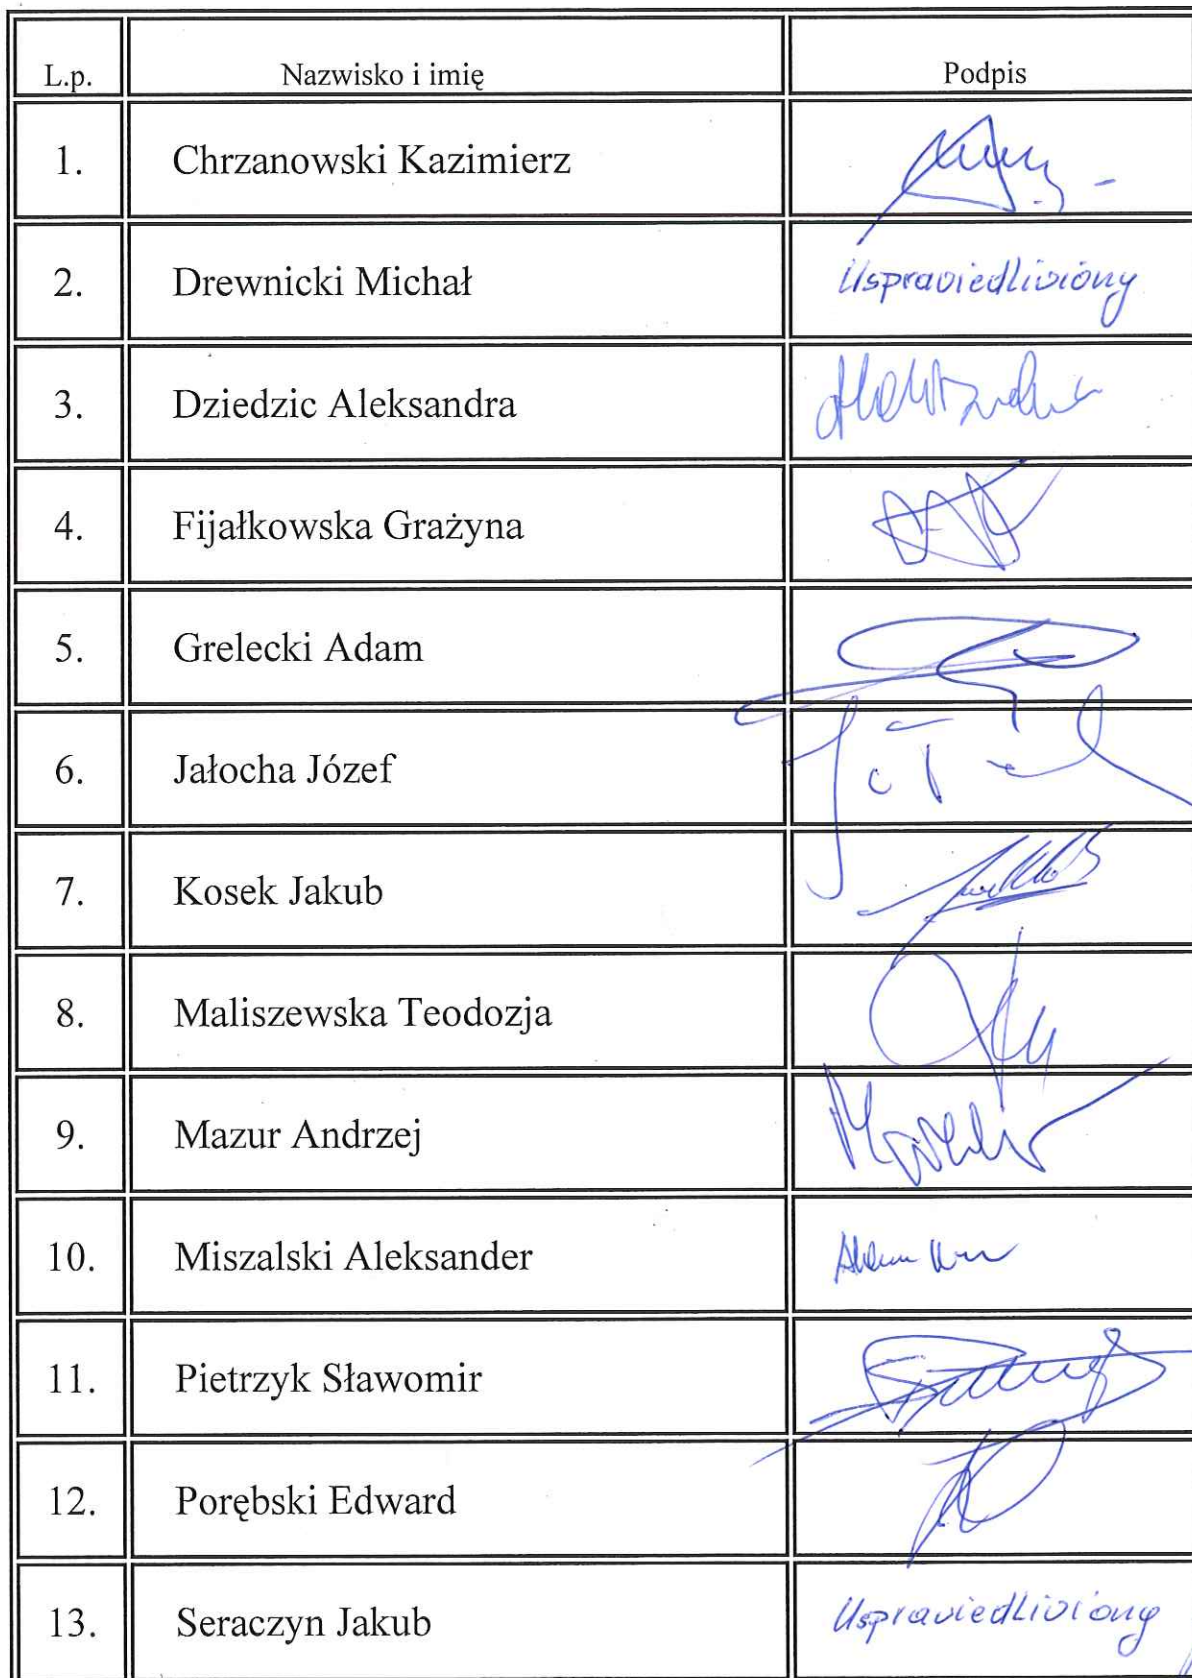 L.p. Nazwisko i imię Podpis
1. Chrzanowski Kazimierz
2. Drewnicki Michał Usprawiedliwiony
3. Dziedzic Aleksandra
4. Fijałkowska Grażyna
5. Grelecki Adam
6. Jałocha Józef
7. Kosek Jakub
8. Maliszewska Teodozja
9. Mazur Andrzej
10. Miszalski Aleksander
11. Pietrzyk Sławomir
12. Porębski Edward
13. Seraczyn Jakub Usprawiedliwiony